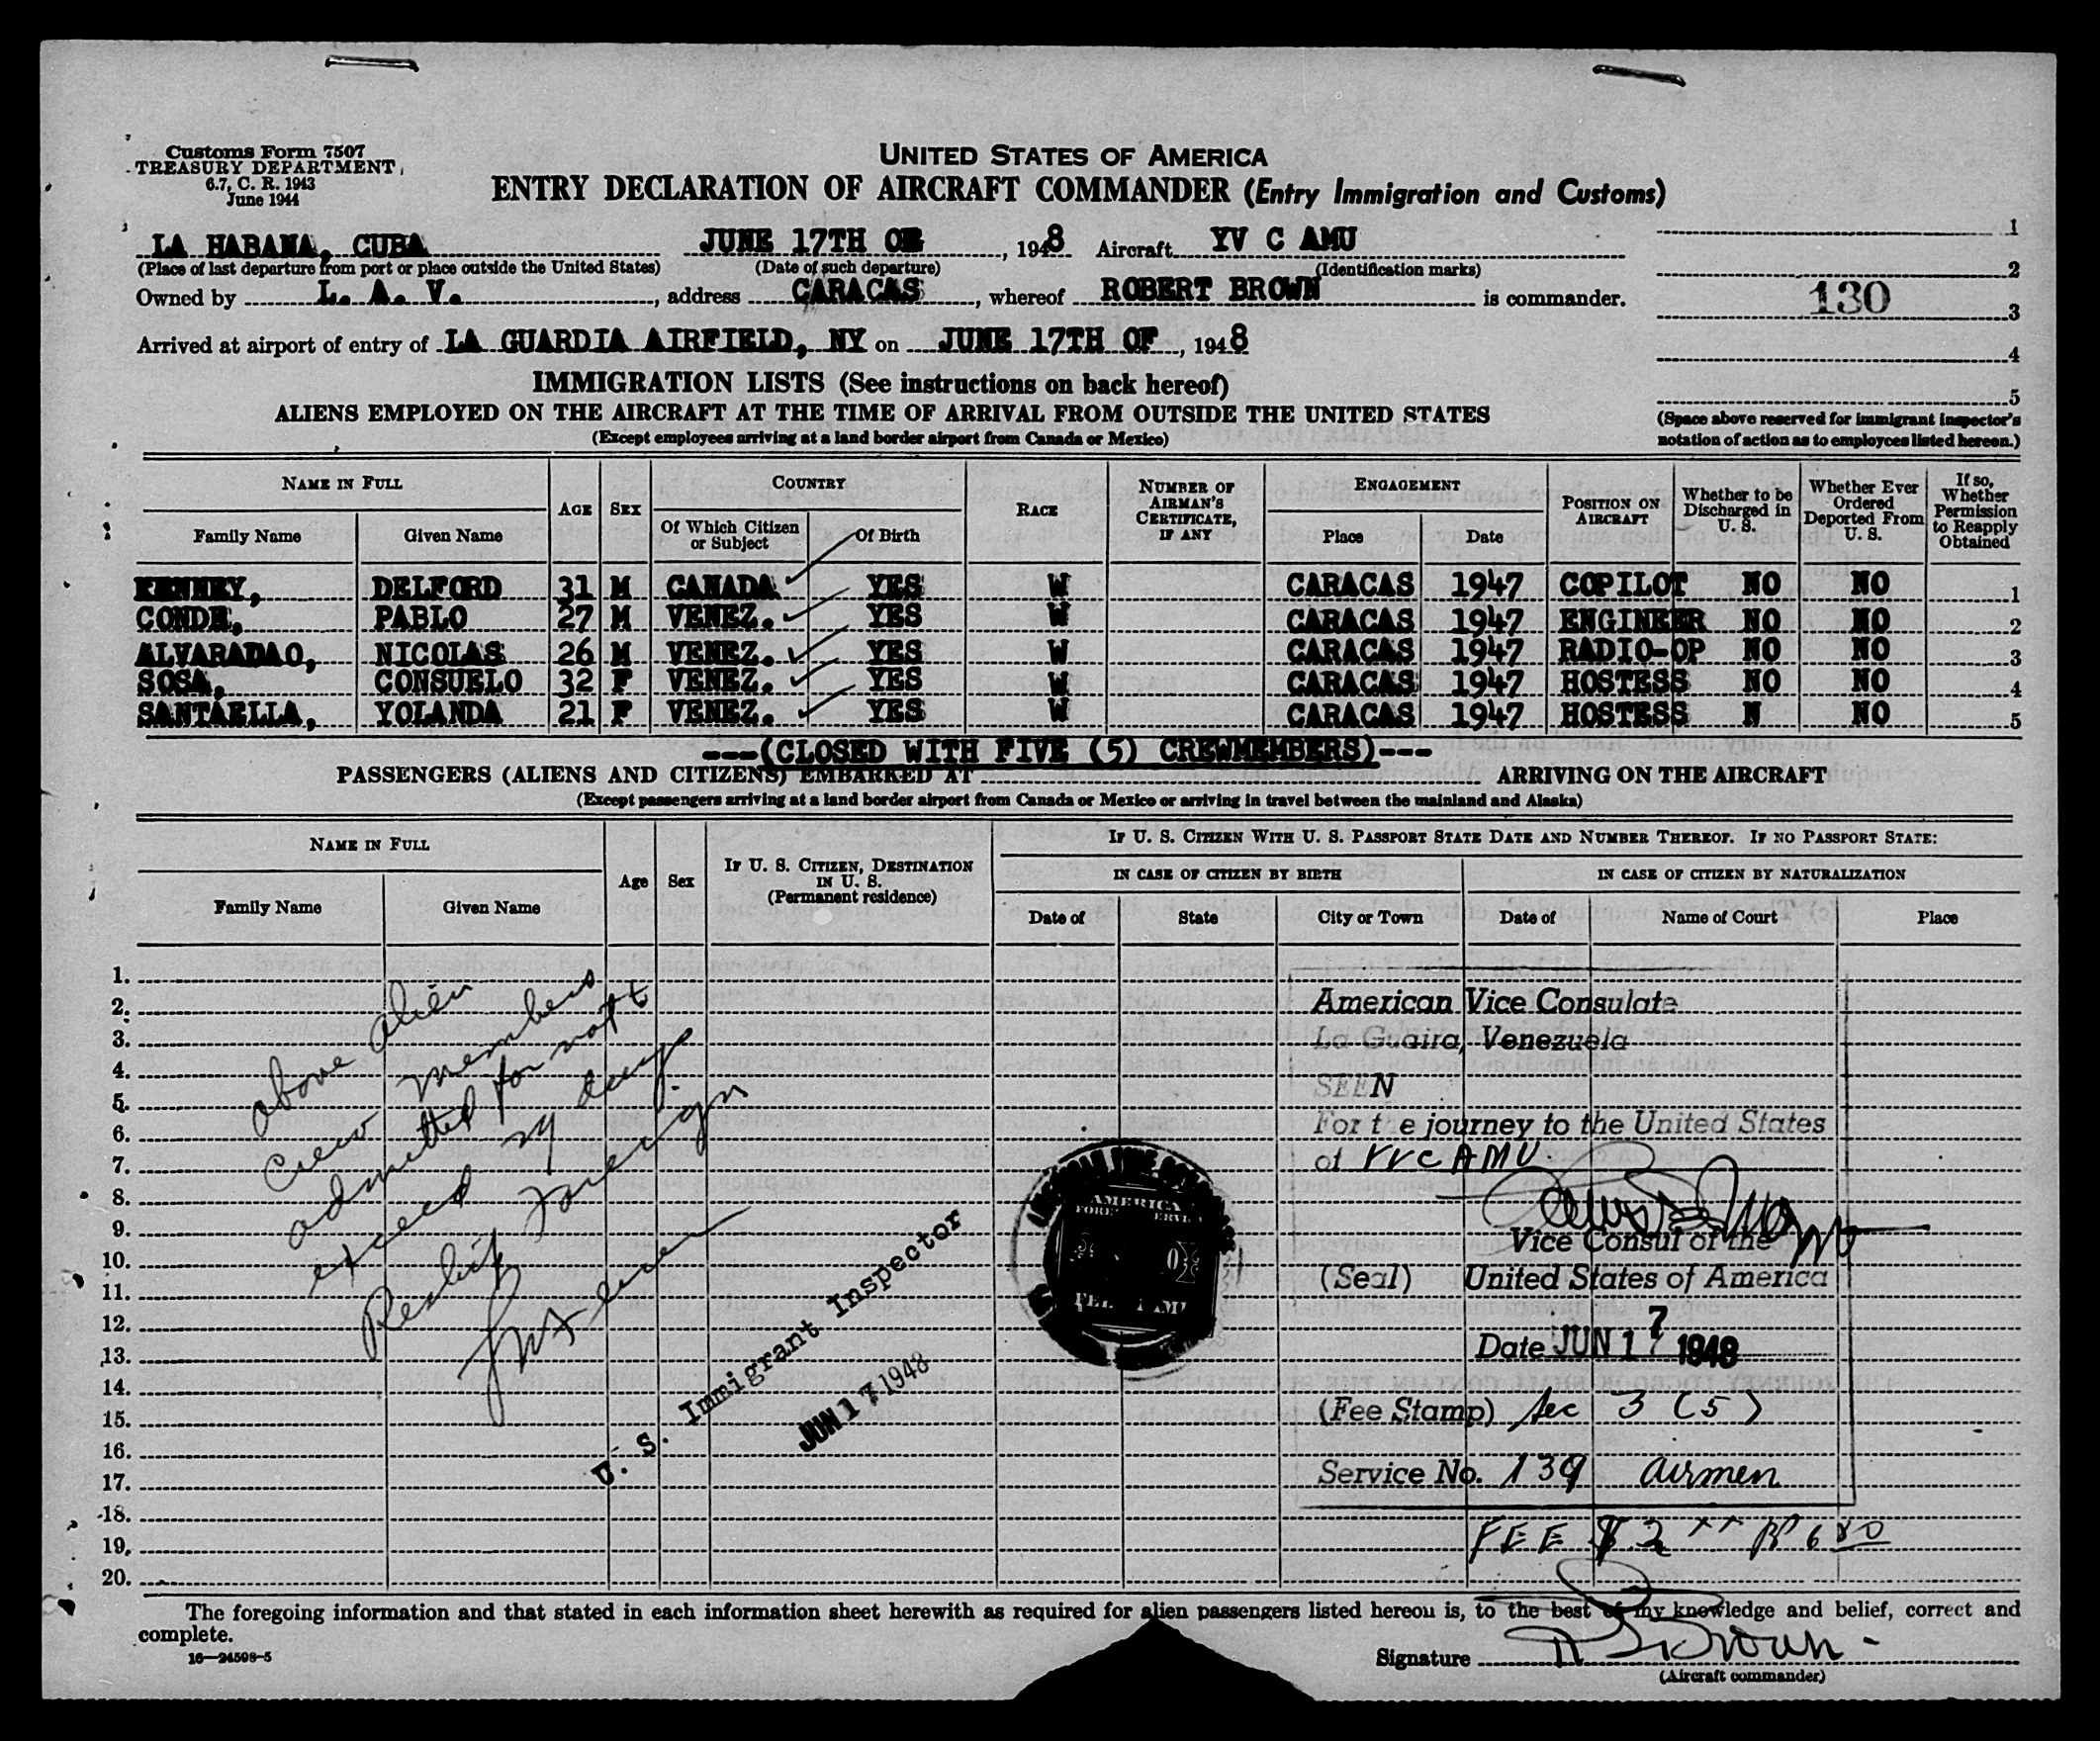 Customs Form 7507
TREASURY DEPARTMENT
6.7, C. R. 1943
June 1944
UNITED STATES OF AMERICA
ENTRY DECLARATION OF AIRCRAFT COMMANDER (Entry Immigration and Customs)
LA HABANA, CUBA JUNE 17TH OF, 1948 Aircraft YV C AMU
(Place of last departure from port or place outside the United States) (Date of such departure) (Identification marks)
Owned by L. A. V., address CARACAS, whereof ROBERT BROWN is commander.
Arrived at airport of entry of LA GUARDIA AIRFIELD, NY on JUNE 17TH OF, 1948
1
2
130
3
4
5
(Space above reserved for immigrant inspector's
notation of action as to employees listed hereon.)
IMMIGRATION LISTS (See instructions on back hereof)
ALIENS EMPLOYED ON THE AIRCRAFT AT THE TIME OF ARRIVAL FROM OUTSIDE THE UNITED STATES
(Except employees arriving at a land border airport from Canada or Mexico)
NAME IN FULL
Family Name Given Name
AGE SEX
COUNTRY
Of Which Citizen or Subject Of Birth
RACE
NUMBER OF AIRMAN'S CERTIFICATE, IF ANY
ENGAGEMENT
Place Date
POSITION ON AIRCRAFT
Whether to be Discharged in U. S.
Whether Ever Ordered Deported From U. S.
If so, Whether Permission to Reapply Obtained
KENNEY, DELFORD 31 M CANADA YES W CARACAS 1947 COPILOT NO NO 1
CONDE, PABLO 27 M VENEZ. YES W CARACAS 1947 ENGINEER NO NO 2
ALVARADAO, NICOLAS 26 M VENEZ. YES W CARACAS 1947 RADIO-OP NO NO 3
SOSA, CONSUELO 32 F VENEZ. YES W CARACAS 1947 HOSTESS NO NO 4
SANTAELLA, YOLANDA 21 F VENEZ. YES W CARACAS 1947 HOSTESS N NO 5
---(CLOSED WITH FIVE (5) CREWMEMBERS)---
PASSENGERS (ALIENS AND CITIZENS) EMBARKED AT ARRIVING ON THE AIRCRAFT
(Except passengers arriving at a land border airport from Canada or Mexico or arriving in travel between the mainland and Alaska)
NAME IN FULL
Family Name Given Name
Age Sex
IF U. S. CITIZEN, DESTINATION IN U. S.
(Permanent residence)
IF U. S. CITIZEN WITH U. S. PASSPORT STATE DATE AND NUMBER THEREOF. IF NO PASSPORT STATE:
IN CASE OF CITIZEN BY BIRTH IN CASE OF CITIZEN BY NATURALIZATION
Date of State City or Town Date of Name of Court Place
1.
2.
3.
4.
5.
6.
7.
8.
9.
10.
11.
12.
13.
14.
15.
16.
17.
18.
19.
20.
above alien
crew members
admitted for not t
exceed 29 days
Reship foreign
U. S. Immigrant Inspector
JUN 17 1948
AMERICA
American Vice Consulate
La Guaira, Venezuela
SEEN
For t e journey to the United States
of YVC AMU.
Vice Consul of the
(Seal) United States of America
Date JUN 17 1948
(Fee Stamp) Sec 3 (5)
Service No. 139 airmen
FEE $2
The foregoing information and that stated in each information sheet herewith as required for alien passengers listed hereon is, to the best of my knowledge and belief, correct and
complete.
16—24598-5
Signature R Brown
(Aircraft commander)